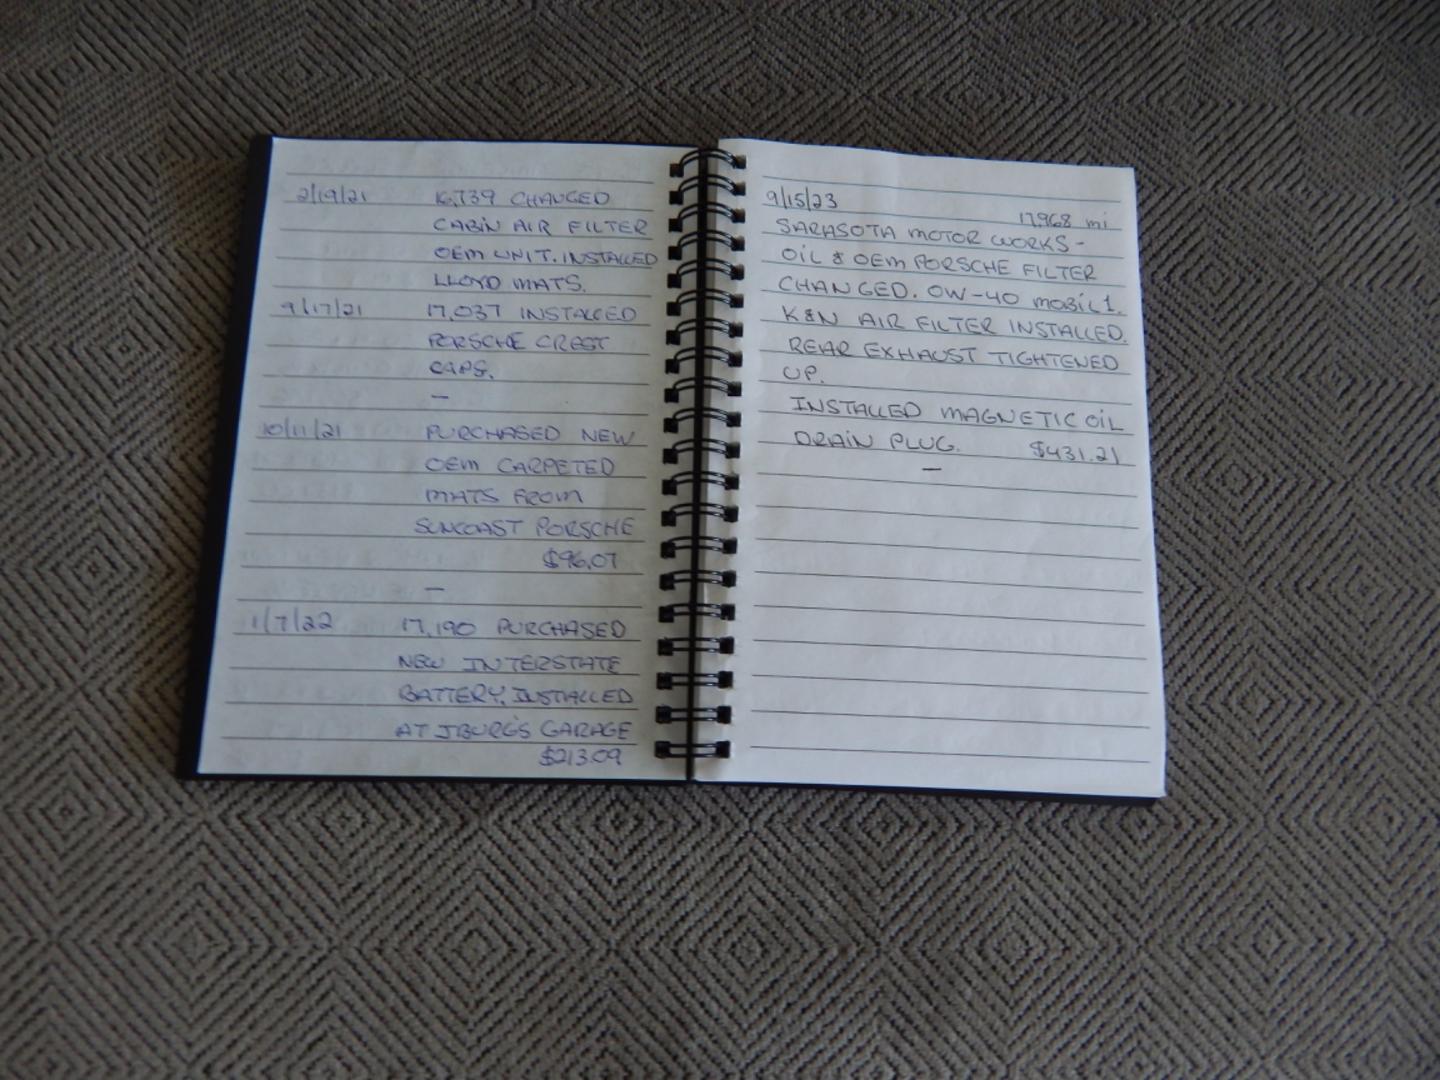 2/19/21 16,739 CHANGED
CABIN AIR FILTER
OEM UNIT. INSTALLED
LLOYD MATS.
9/17/21 17,037 INSTALLED
PORSCHE CREST
CAPS.
—
10/11/21 PURCHASED NEW
OEM CARPETED
MATS FROM
SUNCOAST PORSCHE
$96.07
—
1/7/22 17,190 PURCHASED
NEW INTERSTATE
BATTERY, INSTALLED
AT JBURG'S GARAGE
$213.09
9/15/23
17,968 mi
SARASOTA MOTOR WORKS -
OIL & OEM PORSCHE FILTER
CHANGED. 0W-40 MOBIL 1.
K&N AIR FILTER INSTALLED.
REAR EXHAUST TIGHTENED
UP.
INSTALLED MAGNETIC OIL
DRAIN PLUG. $431.21
—